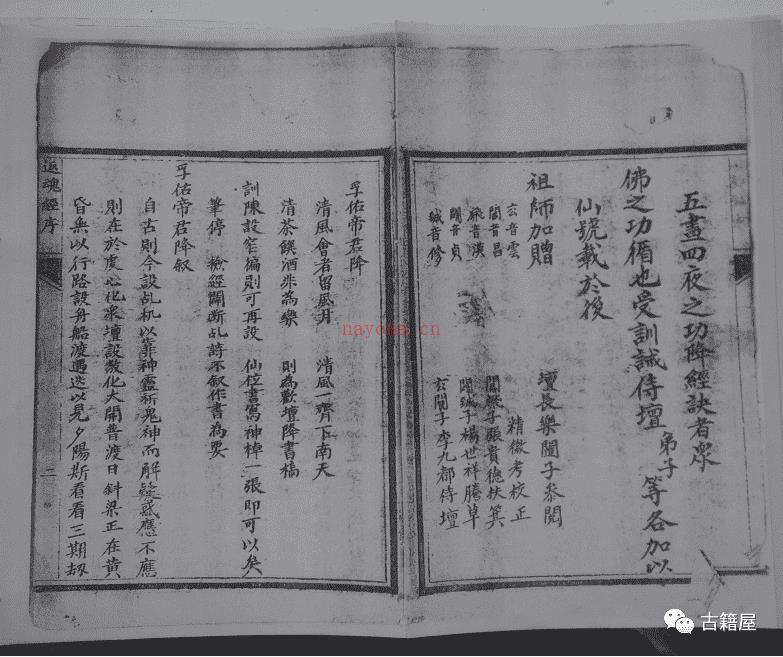 五晝四夜之功降經訣者眾
佛之功循也受訓誡侍壇弟子等各加以
仙號載於後
祖師加贈 壇長樂闡子參閱
玄音雲 精微考校正
闡音昌 張貴德扶箕
音漢 楊世祥謄草
音貞 玄闡子李九都侍壇
誠音修
孚佑帝君降
清風會者留風月 清風一齊下南天
清茶饌酒非為樂 則為歡壇降書稿
訓陳設窄偏則可再設 仙位書寫神棹一張即可以矣
筆停 檢經闡断乩詩不叙作書為要
孚佑帝君降叙
自古則今設乩机以靠神靈祈鬼神而解疑惑應不應
則在於虔心化眾壇設教化大開普渡日斜梁正在黃
昏無以行路設舟船渡遇迭以見夕陽斯看看三期劫
返魂經序
二
nayona.cn
古籍屋